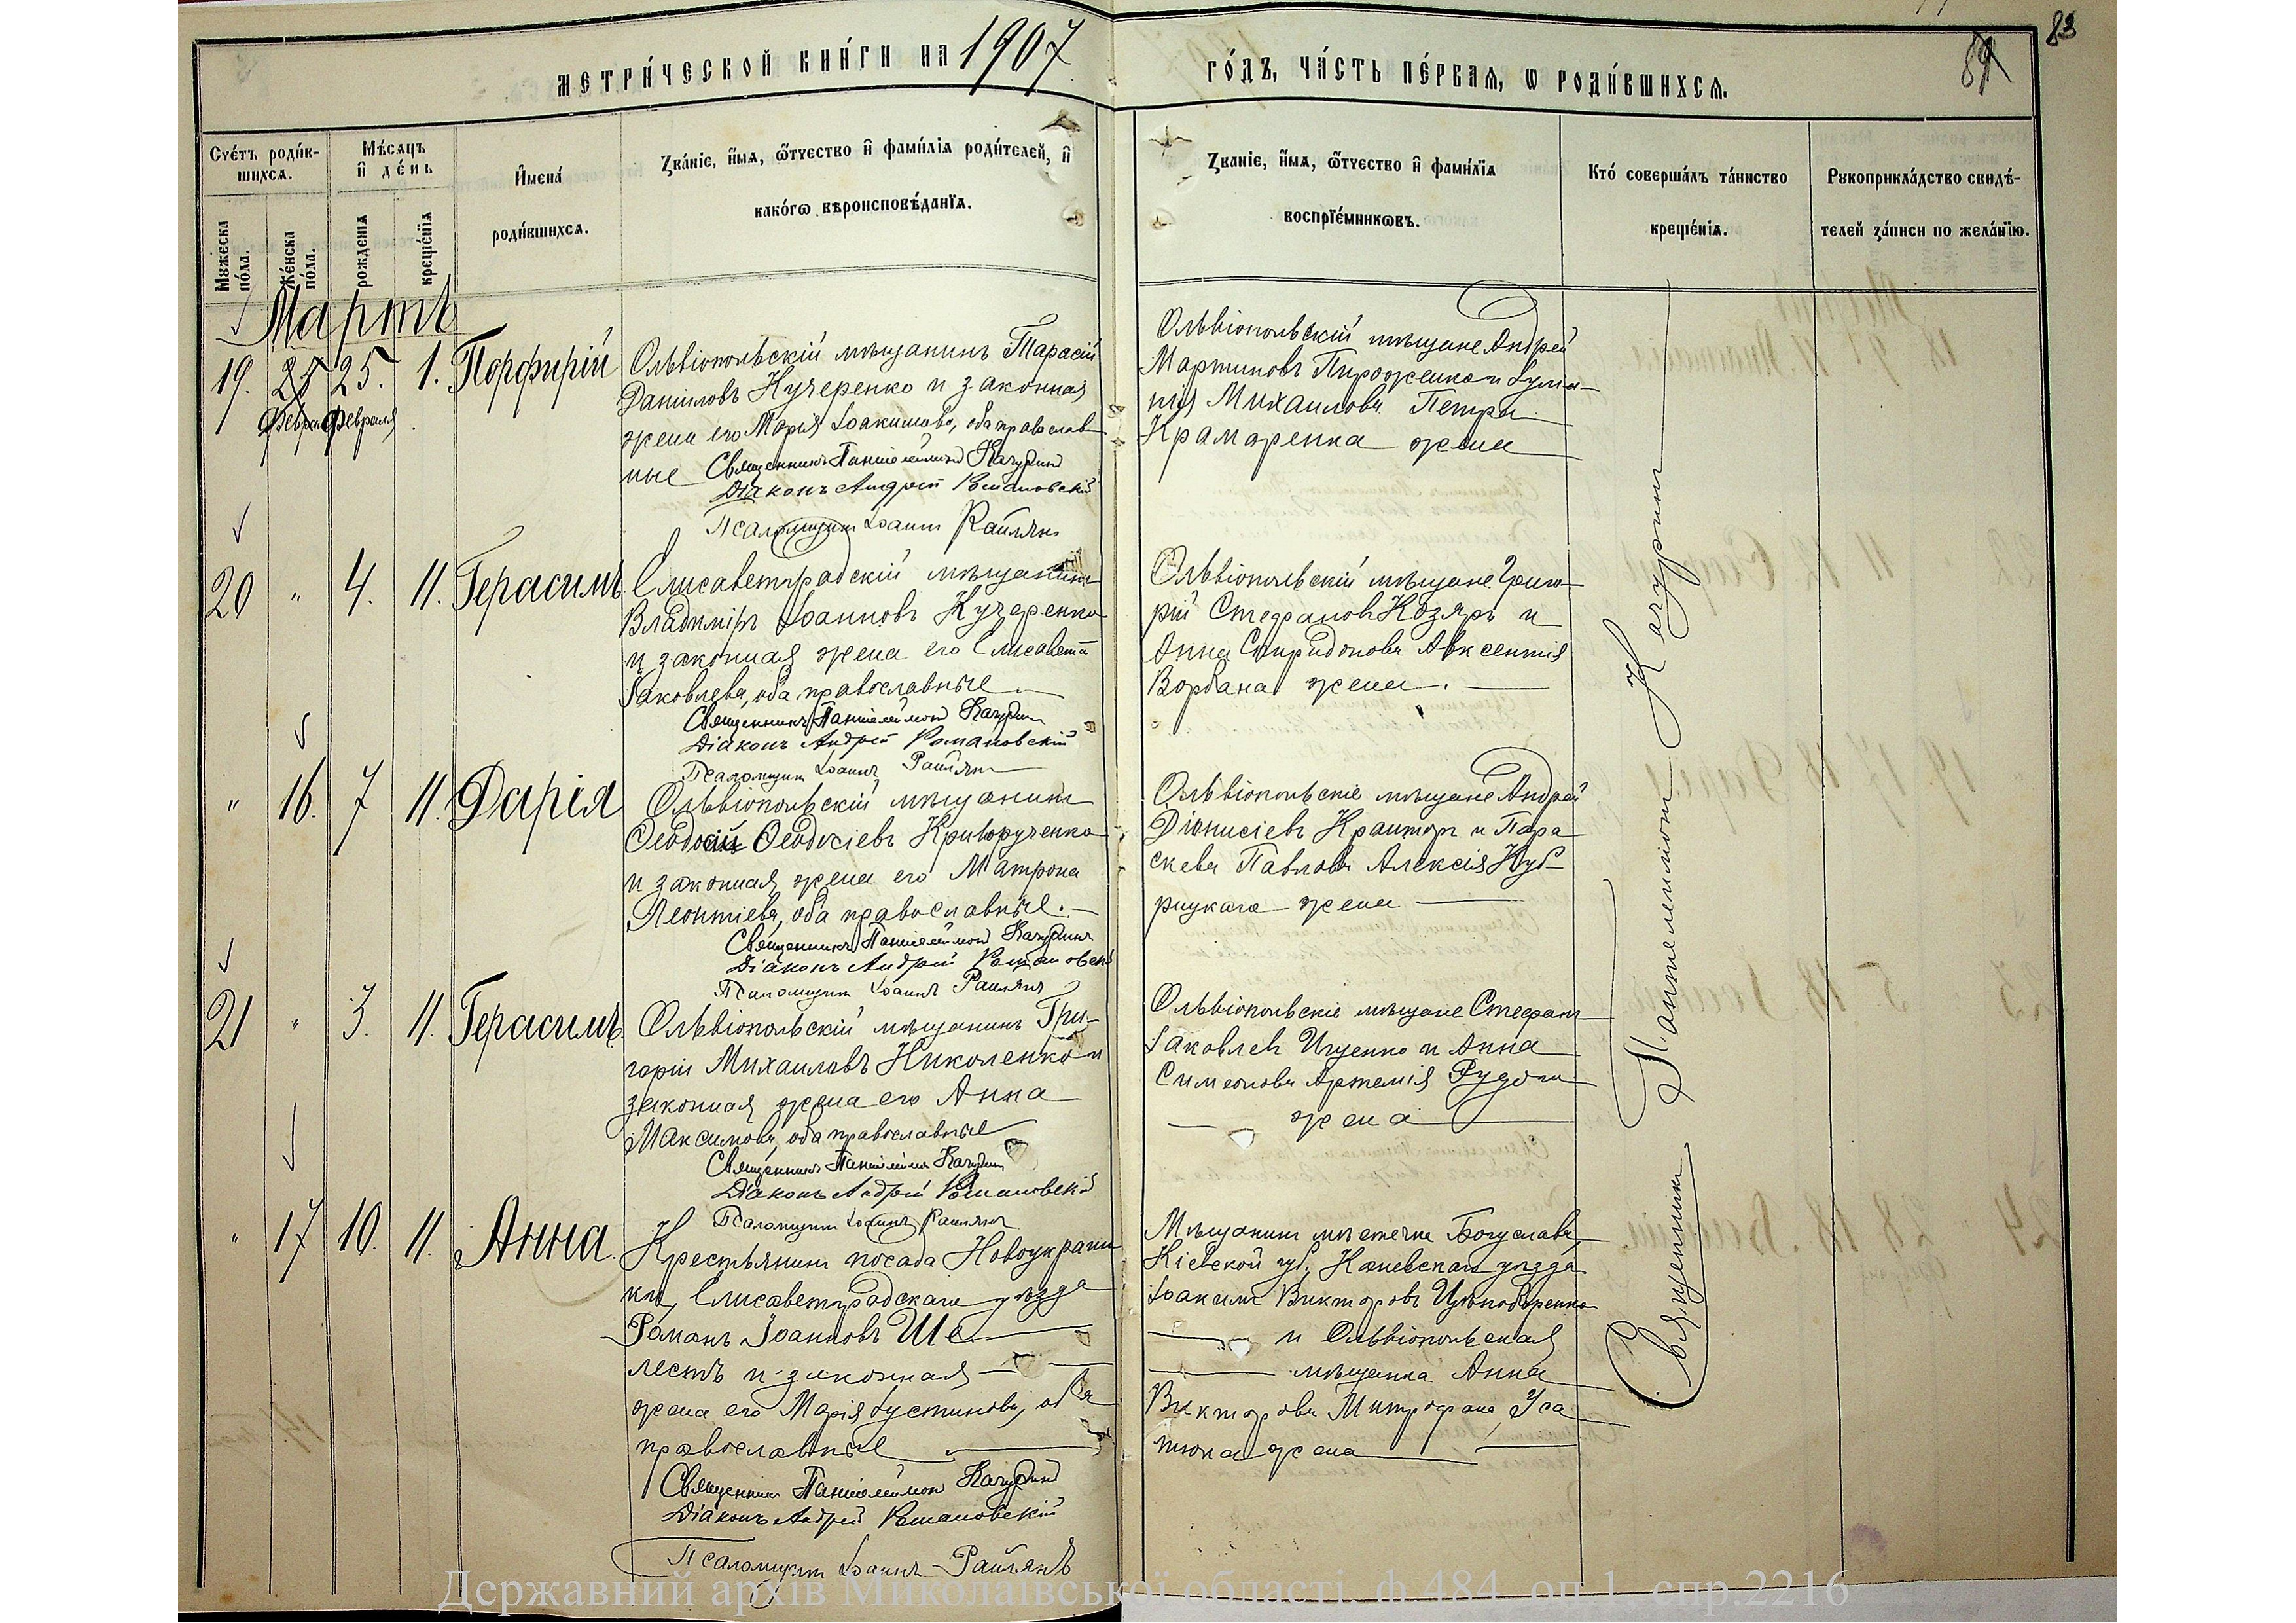 МЕТРИ́ЧЕСКОЙ КНИ́ГИ НА 1907
ГО́ДЪ, ЧА́СТЬ ПЕ́РВАѦ, Ѡ РОДИ́ВШИХСѦ.
83
Счє́тъ роди́в-
шихсѧ.
Мѣ́сѧцъ
и҆ дє́нь
И҆мєна́
роди́вшихсѧ.
Мꙋжєска
по́ла.
Жє́нска
по́ла.
рождєнїѧ
крєщє́нїѧ
Зва́нїє, и҆́мѧ, ѿчєство и҆ фами́лїѧ роди́тєлєй, и҆
како́гѡ вѣроисповѣ́данїѧ.
Званїє, и҆́мѧ, ѿчєство и҆ фами́лїѧ
воспрїє́мникѡвъ.
Кто́ совєрша́лъ та́инство
крєщє́нїѧ.
Рꙋкоприкла́дство свидѣ́-
тєлєй за́писи по жєла́нїю.
Мартъ
19. 25. 1. Порфирій
Февраля
Ольвіопольскій мѣщанинъ Тарасій
Даніиловъ Кучеренко и законная
жена его Марія Іоакимова, оба православ-
ные
Священникъ Пантелеимонъ Качуринъ
Діаконъ Андрей Романовскій
Псаломщикъ Іоаннъ
Ольвіопольскій мѣщане Андрей
Мартиновъ Пироженко и Іулiа-
нія Михаилова Петра
Крамаренка жена
20 " 4. 11. Герасимъ
Елисаветградскій мѣщанинъ
Владиміръ Іоанновъ Кучеренко
и законная жена его Елисавета
Іаковлева, оба православные
Священникъ Пантелеимонъ Качуринъ
Діаконъ Андрей Романовскій
Псаломщикъ Іоаннъ
Ольвіопольскій мѣщане Григо-
рій Стефановъ Козяръ и
Анна Спиридонова Авксентія
Ворбана жена.
" 16. 7 11. Дарія
Ольвіопольскій мѣщанинъ
Ѳеодосій Ѳеодосіевъ Криворученко
и законная жена его Матрона
Леонтіева, оба православные.
Священникъ Пантелеимонъ Качуринъ
Діаконъ Андрей Романовскій
Псаломщикъ Іоаннъ
Ольвіопольскіе мѣщане Андрей
Діонисіевъ и Пара
скева Павлова Алексія
жена
21 " 3. 11. Герасимъ
Ольвіопольскій мѣщанинъ Гри-
горій Михаиловъ Николенко и
законная жена его Анна
Максимова, оба православные
Священникъ Пантелеимонъ Качуринъ
Діаконъ Андрей Романовскій
Псаломщикъ Іоаннъ
Ольвіопольскіе мѣщане Стефанъ
Іаковлевъ Ищенко и Анна
Симеонова Артемія
жена
" 17 10. 11. Анна.
Крестьянинъ посада Новоукраин
ки, Елисаветградскаго уѣзда
Романъ Іоанновъ Ше
лестъ и законная
жена его Марія Іустинова, оба
православные
Священникъ Пантелеимонъ Качуринъ
Діаконъ Андрей Романовскій
Псаломщикъ Іоаннъ
Мѣщанинъ мѣстечка Богуслава,
Кіевской губ, Каневскаго уѣзда
Іоакимъ Викторовъ
и Ольвіопольская
мѣщанка Анна
Викторова Митрофана Уса
тюка жена
Священникъ Пантелеимонъ Качуринъ
Державний архів Миколаївської області. ф.484, оп.1, спр.2216